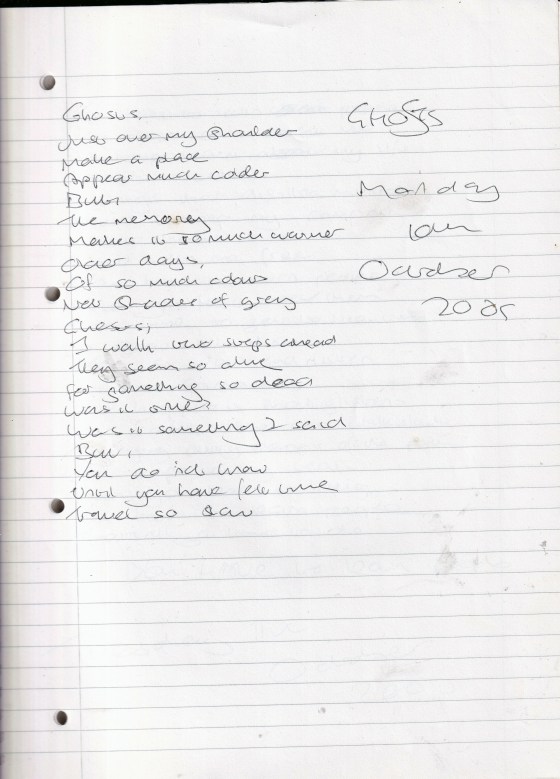 Ghosts,
Just over my shoulder
Make a place
Appear much colder
But,
the memory
Makes it so much warmer
Older days,
Of so much colour
Now shades of grey
Ghosts,
I walk two steps ahead
they seem so alive
for something so dead
was it
was it something I said
But,
You do not know
Until you have felt time
travel so slow
Ghosts
Monday
10th
October
2005